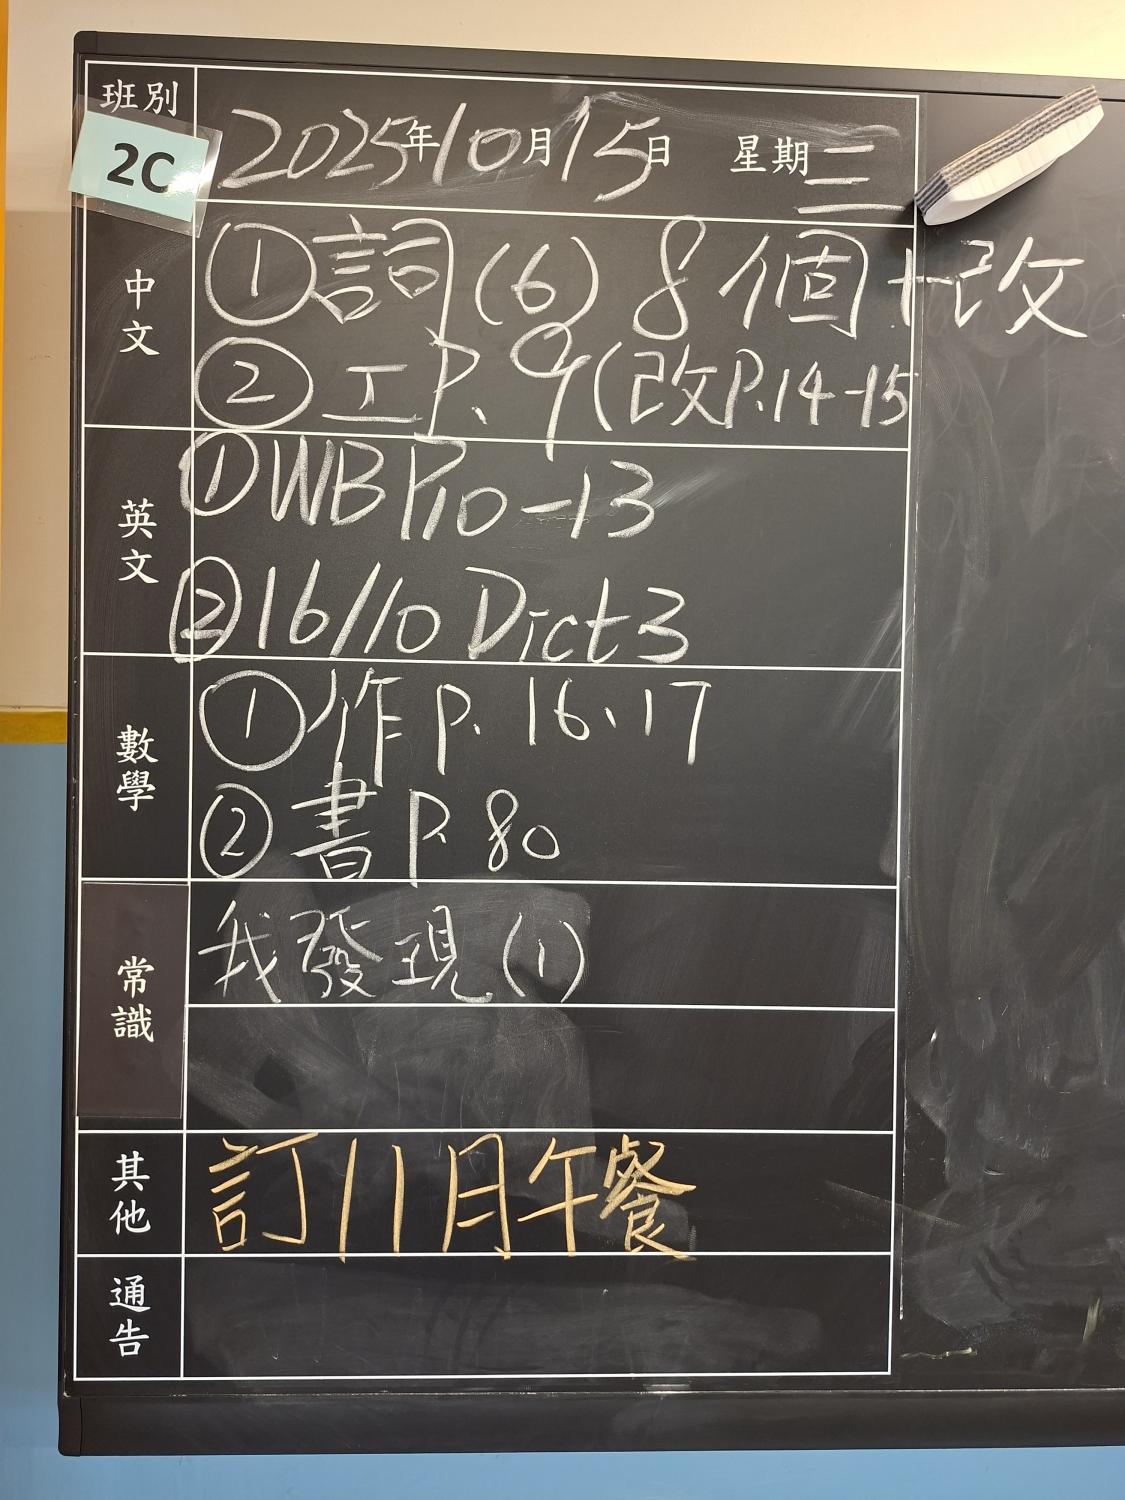 班別
2C
2025年10月15日 星期三
中文
①詞(6) 8個+改
②工P.9(改P.14-15
英文
①WB P10-13
②16/10 Dict 3
數學
①作P.16、17
②書P.80
常識
我發現(1)
其他
訂11月午餐
通告